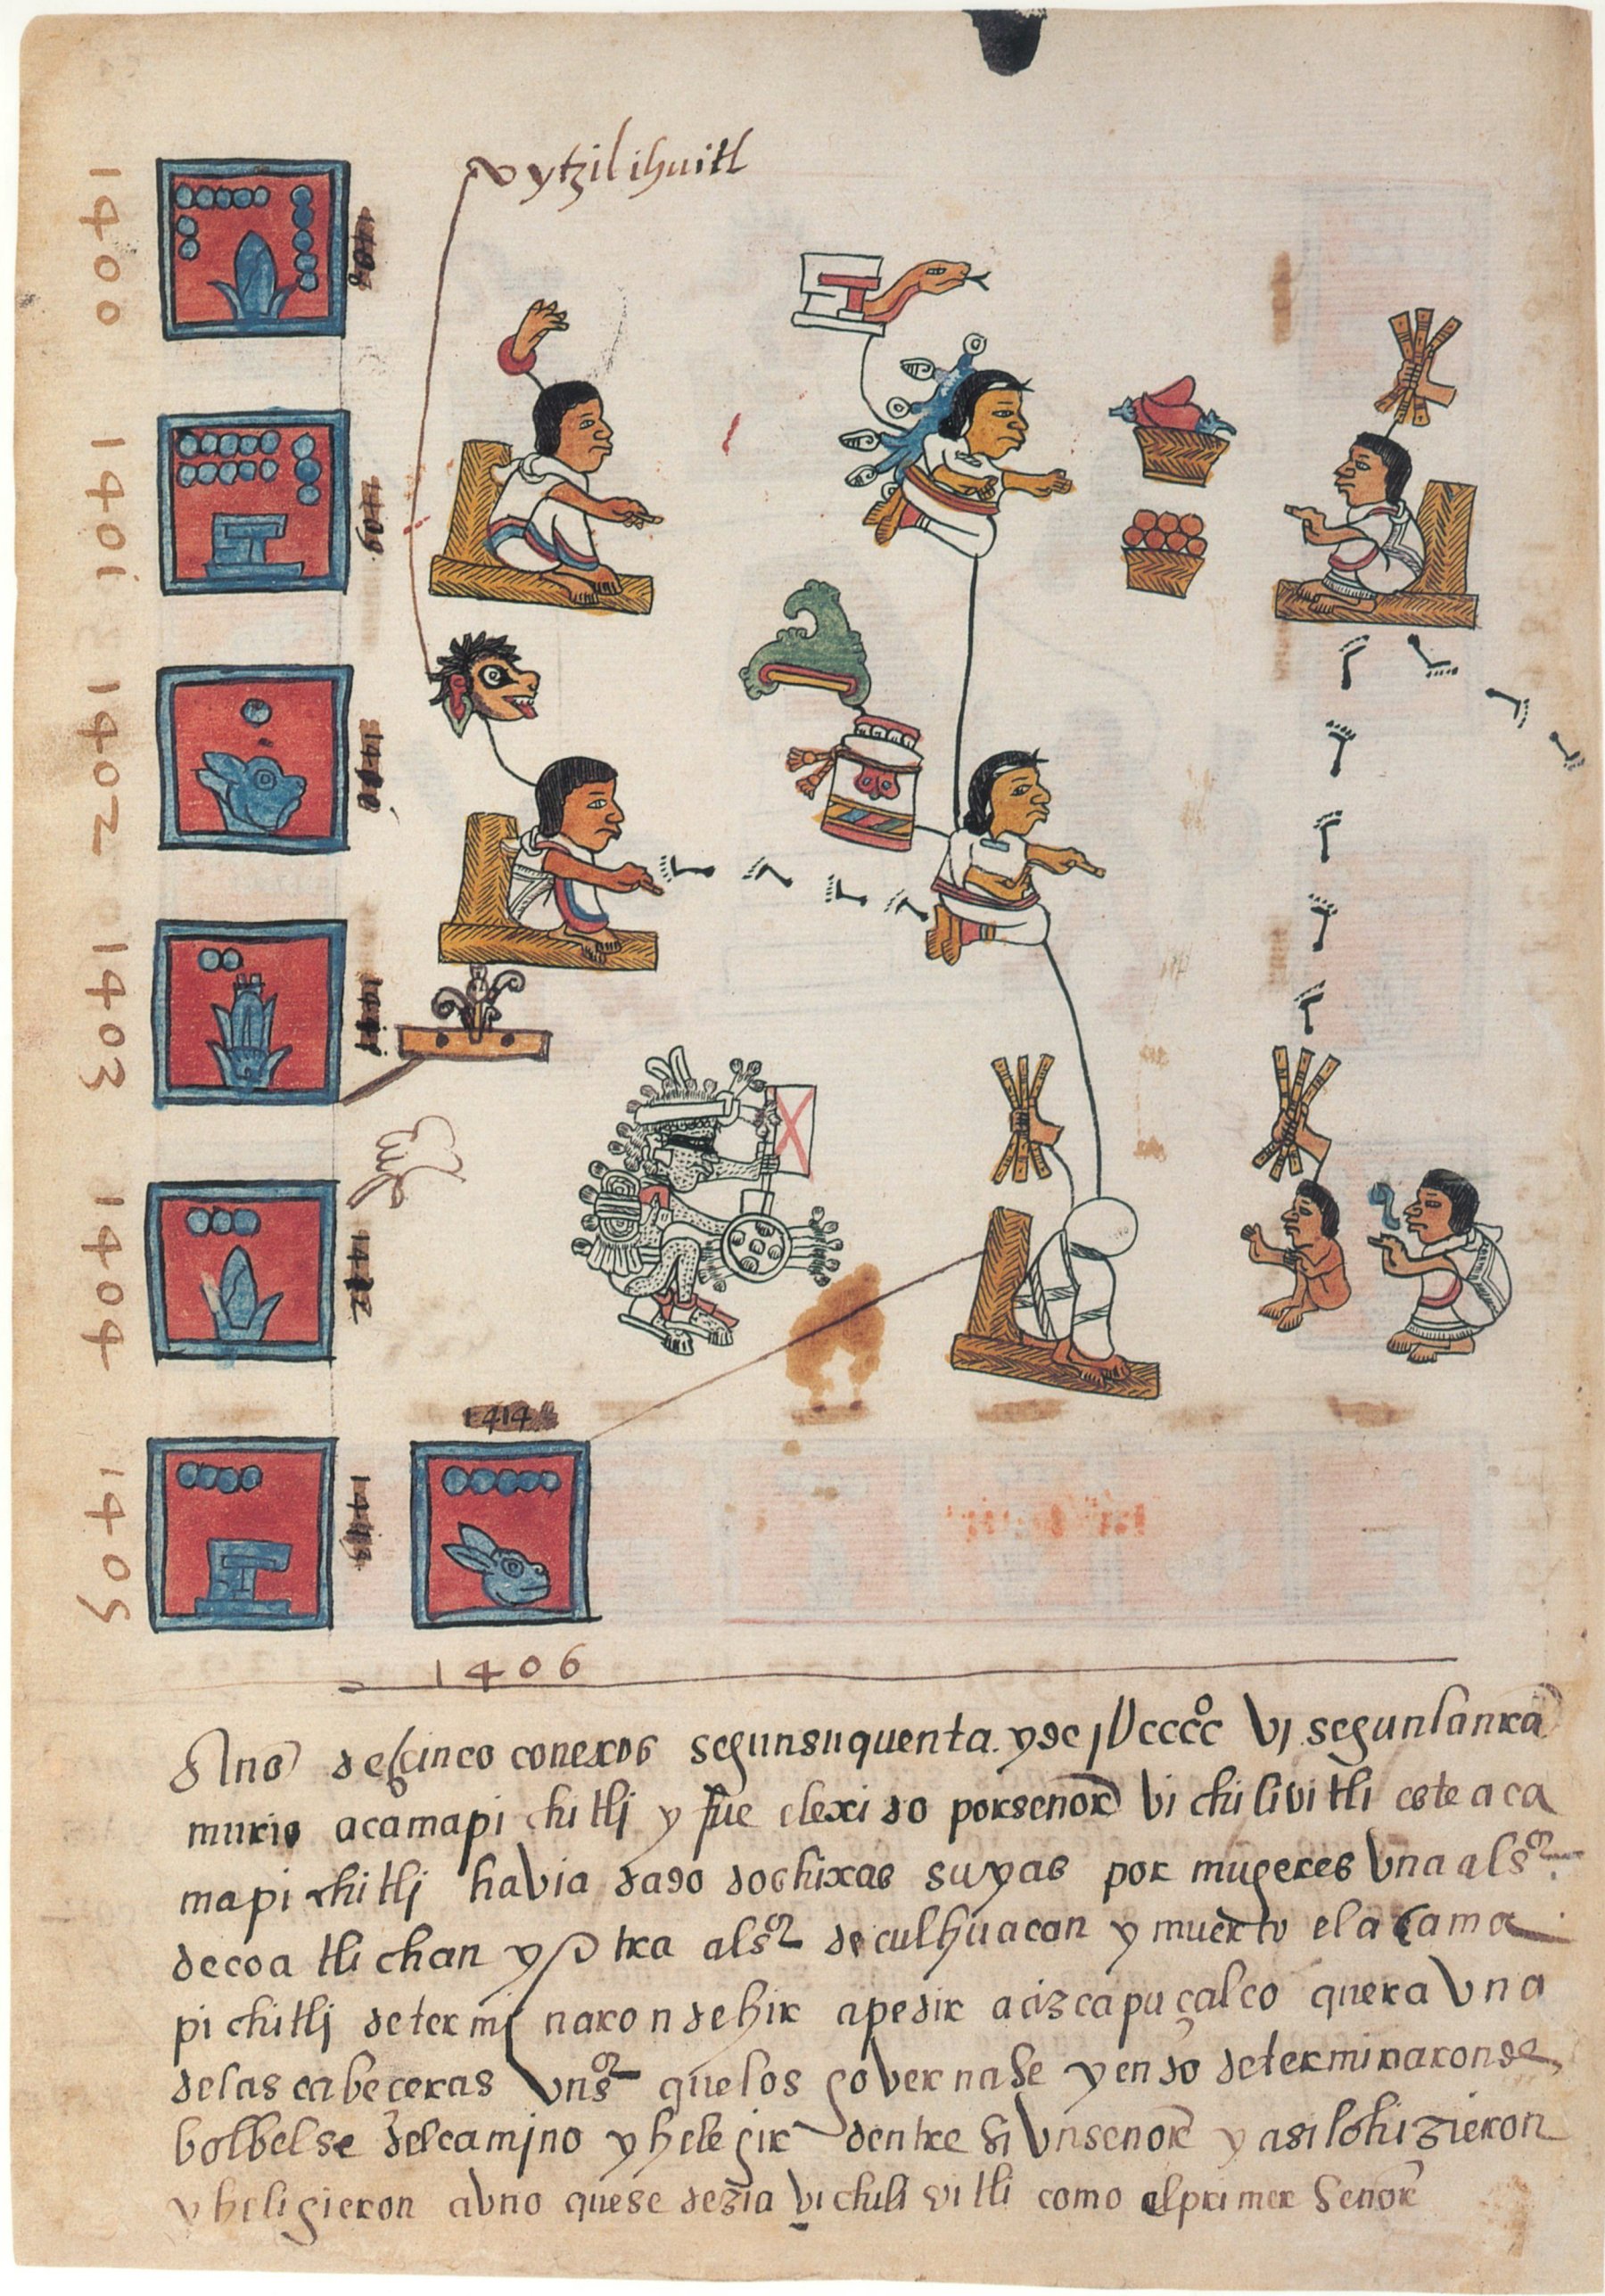 vytzilihuitl
1400
1401
1402
1403
1404
1405
1414
1406
Ano de cinco conexos segunsuquenta. yde jUcccc° Vj segunlanra
murio acamapi chitlj y fue elexido porsenor Vi chilivitli este aca
mapi chitlj havia dado dos hixas suyas por mugeres Vna als.or
decoa tli chan y otra als.or de culhuacan y muerto el acama
pi chitlj determinaron dehir apedir aazcapuçalco quera Vna
delas cabeceras Vns.or quelos governase yendo determinaronde
bolbelse delcamjno y helegir dentre si Vnsenor y asilohizieron
y heligieron aVno quese dezia Vi chili vi tli como elprimer Senor